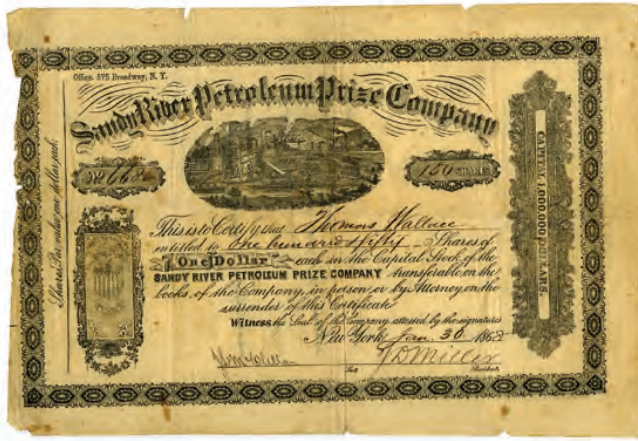 Office, 575 Broadway, N. Y.
Sandy River Petroleum Prize Company
No 668
150 SHARES
Shares Par value one dollar each
CAPITAL 1,000,000 DOLLARS.
This is to Certify that Thomas Wallace
entitled to one hundred & fifty Shares of
One Dollar each in the Capital Stock of the
SANDY RIVER PETROLEUM PRIZE COMPANY transferable on the
books of the Company, in person or by Attorney on the
surrender of this Certificate
Witness the Seal of the Company attested by the signatures
New York Jan. 30 1865
J D Miller
Sec
President